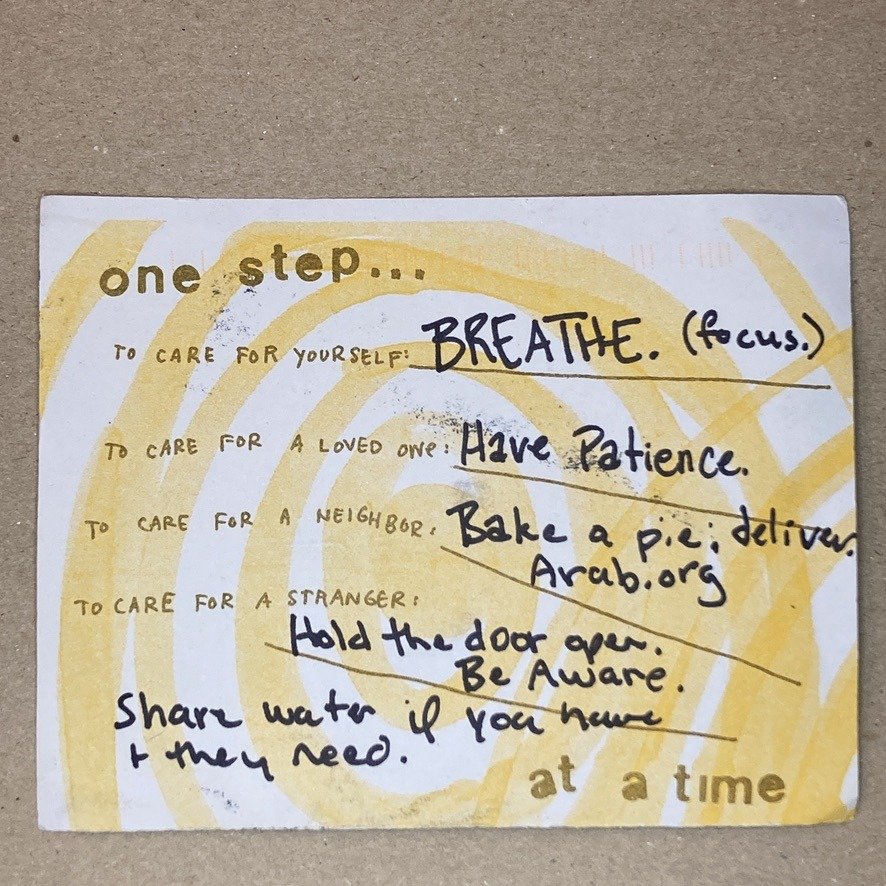 one step...
TO CARE FOR YOURSELF: BREATHE. (focus.)
TO CARE FOR A LOVED ONE: Have Patience.
TO CARE FOR A NEIGHBOR: Bake a pie; deliver.
Arab.org
TO CARE FOR A STRANGER:
Hold the door open.
Be Aware.
Share water if you have
+ they need.
at a time